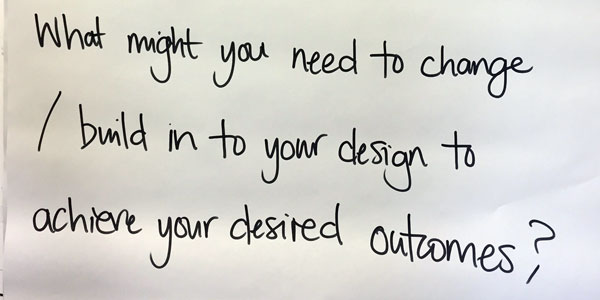 What might you need to change
/ build in to your design to
achieve your desired outcomes?